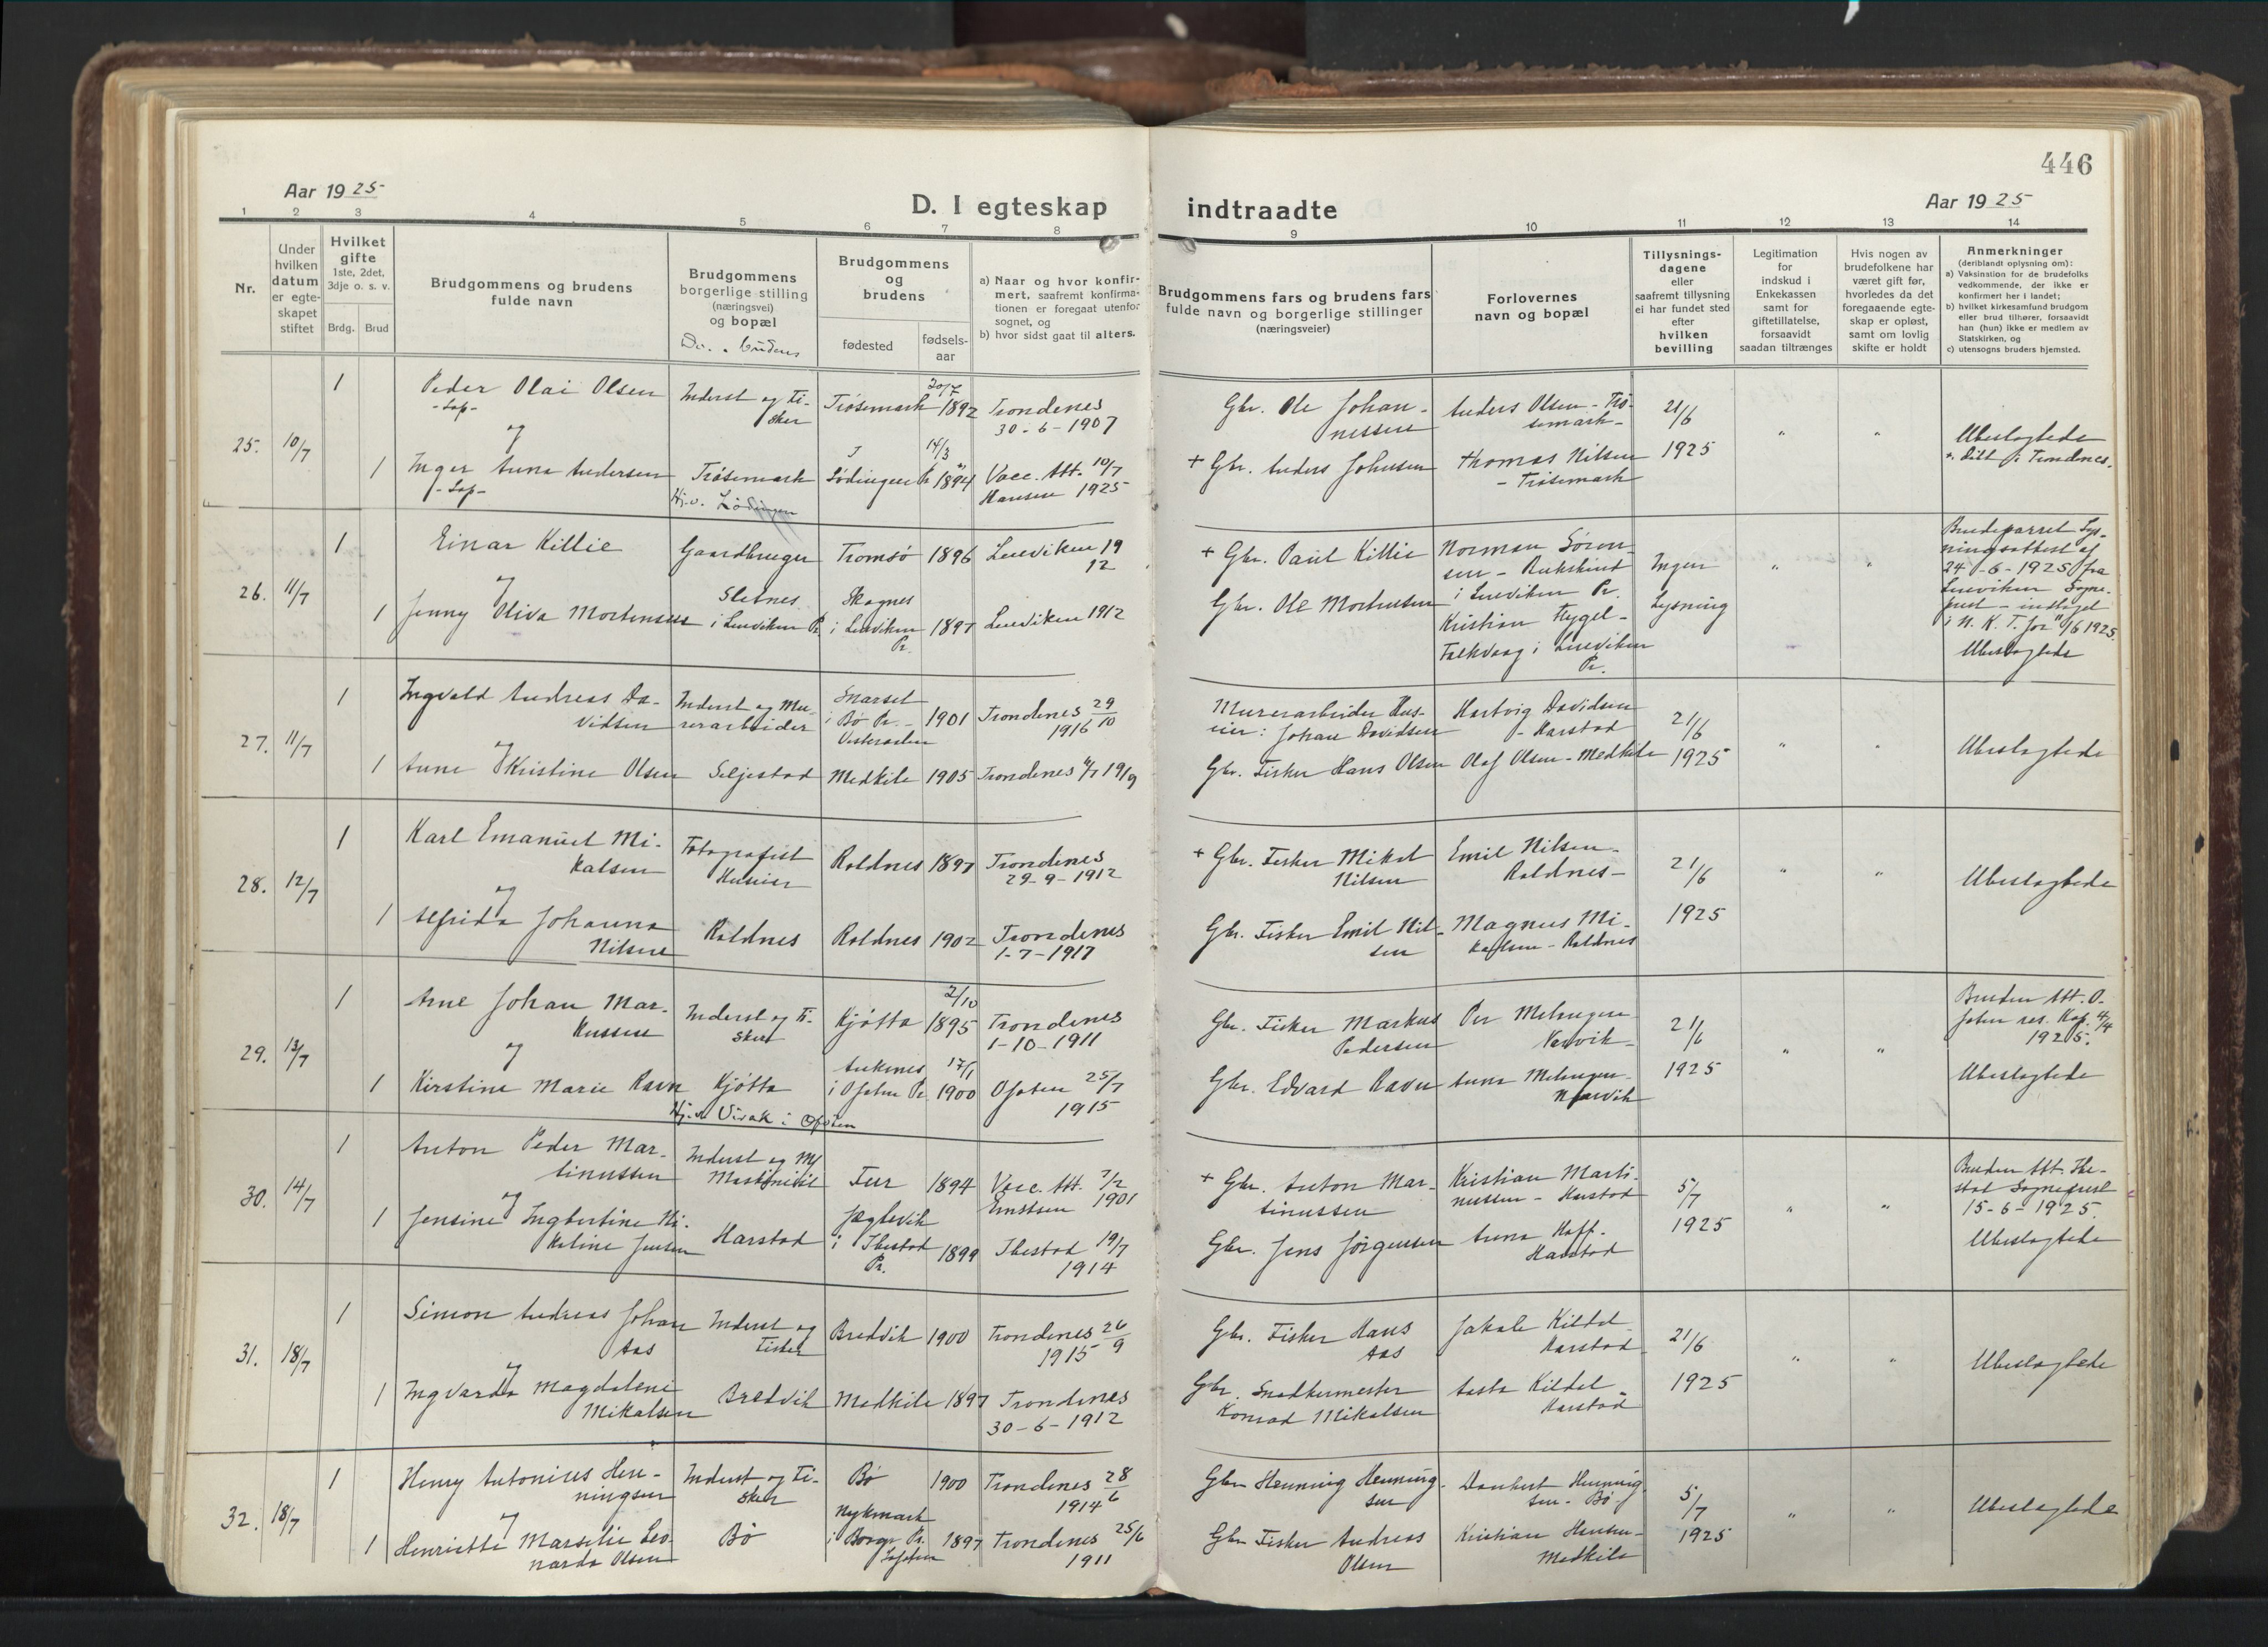 446
Aar 1925
D. I egteskap indtraadte
Aar 1925
1 2 3 4 5 6 7 8 9 10 11 12 13 14
Nr.
Under
hvilken
datum
er egte-
skapet
stiftet
Hvilket
gifte
1ste, 2det,
3dje o. s. v.
Brdg. Brud
Brudgommens og brudens
fulde navn
Brudgommens
borgerlige stilling
(næringsvei)
og bopæl
Brudgommens
og
brudens
fødested
fødsels-
aar
a) Naar og hvor konfir-
mert, saafremt konfirma-
tionen er foregaat utenfor
sognet, og
b) hvor sidst gaat til alters.
Brudgommens fars og brudens fars
fulde navn og borgerlige stillinger
(næringsveier)
Forlovernes
navn og bopæl
Tillysnings-
dagene
eller
saafremt tillysning
ei har fundet sted
efter
hvilken
bevilling
Legitimation
for
indskud i
Enkekassen
samt for
giftetillatelse,
forsaavidt
saadan tiltrænges
Hvis nogen av
brudefolkene har
været gift før,
hvorledes da det
foregaaende egte-
skap er opløst,
samt om lovlig
skifte er holdt
Anmerkninger
(deriblandt oplysning om):
a) Vaksination for de brudefolks
vedkommende, der ikke er
konfirmert her i landet;
b) hvilket kirkesamfund brudgom
eller brud tilhører, forsaavidt
han (hun) ikke er medlem av
Statskirken, og
c) utensogns bruders hjemsted.
25. 10/7
1 Peder Olai Olsen
-Lap-
Inderst og Fi-
sker
Trøsemark
20/7
1892
Trondenes
30-6-1907
Gbr. Ole Johan-
nessen
Anders Olsen - Trø-
semark-
21/6
1925
og
1 Inger Anna Andersen
-Lap-
Trøsemark
Hj.v. Lødingen
I
Lødingen P
14/3
1894
Vacc. Att. 10/7
Hansen 1925
+ Gbr. Anders Johnsen
Thomas Nilsen
- Trøsemark
Ubeslagtede
26. 11/7
1 Einar Killie
Gaardbruger
Tromsø 1896
Lenviken 19
12
+ Gbr. Paul Killie
Norman Søren-
sen -
i Lenviken Pr.
Ingen
Lysning
og
1 Jenny Oliva Mortensen
Sletnes
i Lenviken Pr
Skognes
i Lenviken
Pr.
1897
Lenviken 1912
Gbr. Ole Mortensen
Kristian Hygel-
i Lenviken
Pr.
Brudeparret Lys-
ningsattest af
24-6-1925 fra
Lenviken Sogne-
prest - indtaget
i N. K. T. for 11/6 1925.
Ubeslagtede
27. 11/7
1 Ingvald Andreas Da-
vidsen
Inderst og Mu-
rerarbeider
i Bø Pr. -
Vesteraalen
1901
Trondenes 29/10
1916
Murerarbeider Hus-
eier: Johan Davidsen
Hartvig Davidsen
- Harstad
21/6
1925
og
1 Anne Kristine Olsen
Seljestad
Medkile 1905
Trondenes 6/7 1919
Gbr. Fisker Hans Olsen
Olaf Olsen - Medkile
Ubeslagtede
28. 12/7
1 Karl Emanuel Mi-
kalsen
Fotografist
Huseier
Roldnes 1897
Trondenes
29-9-1912
+ Gbr. Fisker Mikal
Nilsen
Emil Nilsen-
Roldnes-
21/6
1925
og
1 Alfrida Johanna
Nilsen
Roldnes
Roldnes 1902
Trondenes
1-7-1917
Gbr. Fisker Emil Nil-
sen
Magnus Mi-
kalsen - Roldnes
Ubeslagtede
29. 13/7
1 Arne Johan Mar-
kussen
Inderst og Fi-
sker
Kjøtta
2/10
1895
Trondenes
1-10-1911
Gbr. Fisker Markus
Pedersen
Per
Narvik-
21/6
1925
og
1 Kirstine Marie Ravn
Kjøtta
Hj.v. Virak i Ofoten
Ankenes
i Ofoten Pr.
17/1
1900
Ofoten 25/7
1915
Gbr. Edvard Ravn
Anna
Narvik
Bruden Att. O-
foten res. Kap. 4/4
1925.
Ubeslagtede
30. 14/7
1 Anton Peder Mar-
tinussen
Inderst og
Maskinist
Fur 1894
Vacc. Att. 7/2
Ernstsen 1901
+ Gbr. Anton Mar-
tinussen
Kristian Marti-
nussen - Harstad
5/7
1925
og
1 Jensine Ingbertine Ni-
koline Jensen
Harstad
i Ibestad
Pr.
1899
Ibestad 19/7
1914
Gbr. Jens Jørgensen
Anna Hoff-
Harstad
Bruden Att. Ibe-
stad Sogneprest
15-6-1925.
Ubeslagtede
31. 18/7
1 Simon Andreas Johan
Aas
Inderst og
Fisker
Bredvik 1900
Trondenes 26/9
1915
Gbr. Fisker Hans
Aas
Jakob Kildal
Harstad
21/6
1925
og
1 Ingvarda Magdalene
Mikalsen
Bredvik
Medkile 1897
Trondenes
30-6-1912
Gbr. Snedkermester
Konrad Mikalsen
Aasta Kildal
Harstad
Ubeslagtede
32. 18/7
1 Henry Antonius Hen-
ningsen
Inderst og Fi-
sker
Bø 1900
Trondenes 28/6
1914
Gbr Henning Henning-
sen
Henning-
sen - Bø-
5/7
1925
og
1 Henriette Marselie Leo-
narda Olsen
Bø
Nykmark
i Borge Pr.
Lofoten
1897
Trondenes 25/6
1911
Gbr Fisker Andreas
Olsen
Kristian Hansen-
Medkile
Ubeslagtede